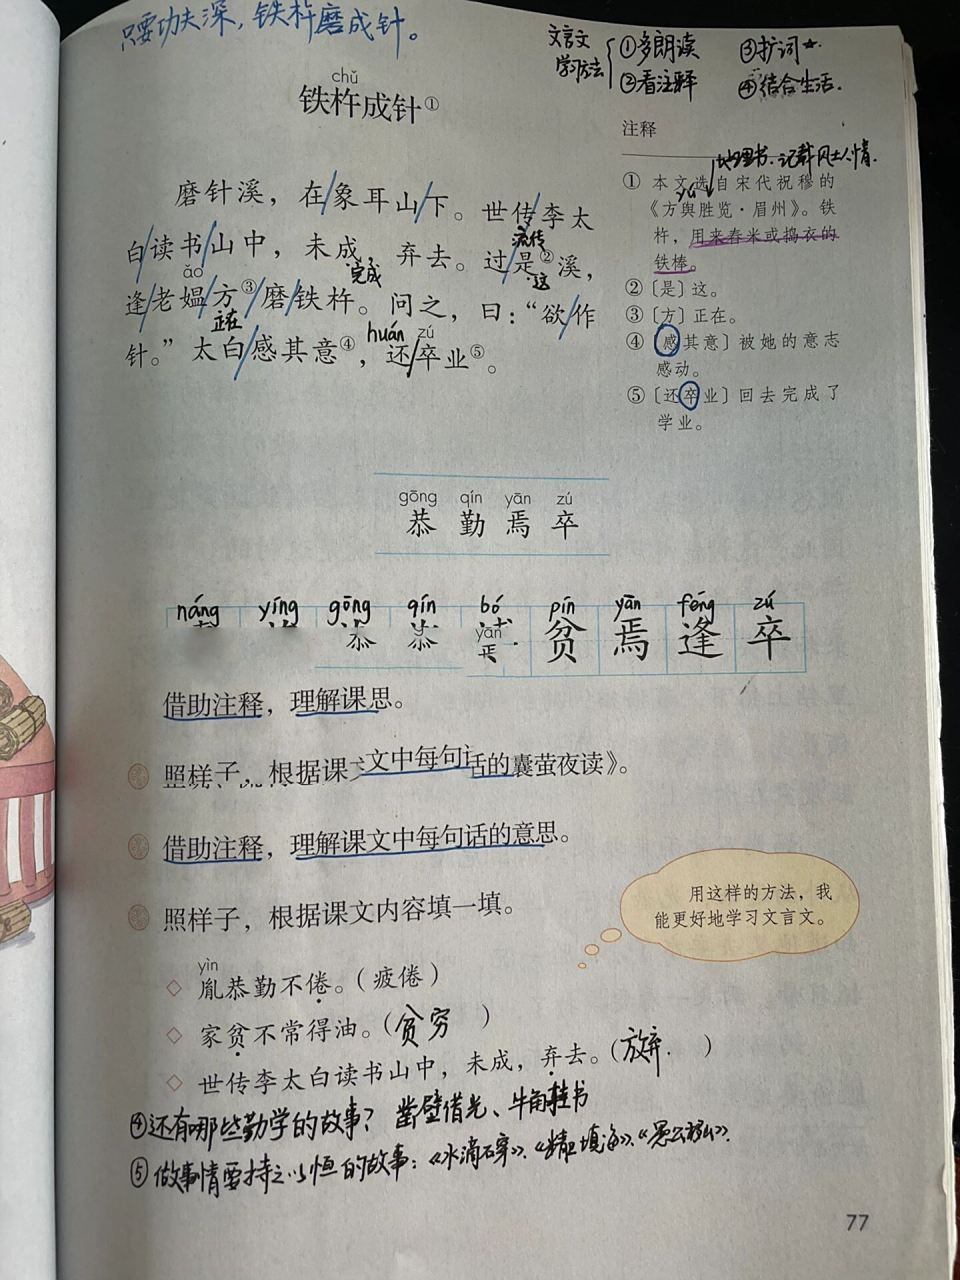 只要功夫深，铁杵磨成针。
文言文
学习方法
①多朗读
③扩词☆.
②看注释
④结合生活.
chǔ
铁杵成针①
注释
地理书.记载风土人情.
磨针溪，在/象耳山/下。世传/李太
白/读书/山中，未成，弃去。过/是②溪，
流传
完成
这
ǎo
逢/老媪/方③/磨/铁杵。问之，曰：“欲/作
正在
huán
zú
针。”太白/感其意④，还/卒业⑤。
① 本文选自宋代祝穆的
yú
《方舆胜览·眉州》。铁
杵，用来舂米或捣衣的
铁棒。
②〔是〕这。
③〔方〕正在。
④〔感其意〕被她的意志
感动。
⑤〔还卒业〕回去完成了
学业。
gōng qín yān zú
恭 勤 焉 卒
náng yíng gōng qín bó pín yān féng zú
yān
贫 焉 逢 卒
借助注释，理解课思。
照样子，根据课文中每句话的囊萤夜读》。
借助注释，理解课文中每句话的意思。
照样子，根据课文内容填一填。
用这样的方法，我
能更好地学习文言文。
yìn
◇ 胤恭勤不倦。（疲倦）
◇ 家贫不常得油。（贫穷 ）
◇ 世传李太白读书山中，未成，弃去。（放弃. ）
④还有哪些勤学的故事？ 凿壁借光、牛角挂书
⑤做事情要持之以恒的故事：《水滴石穿》、《精卫填海》、《愚公移山》.
77